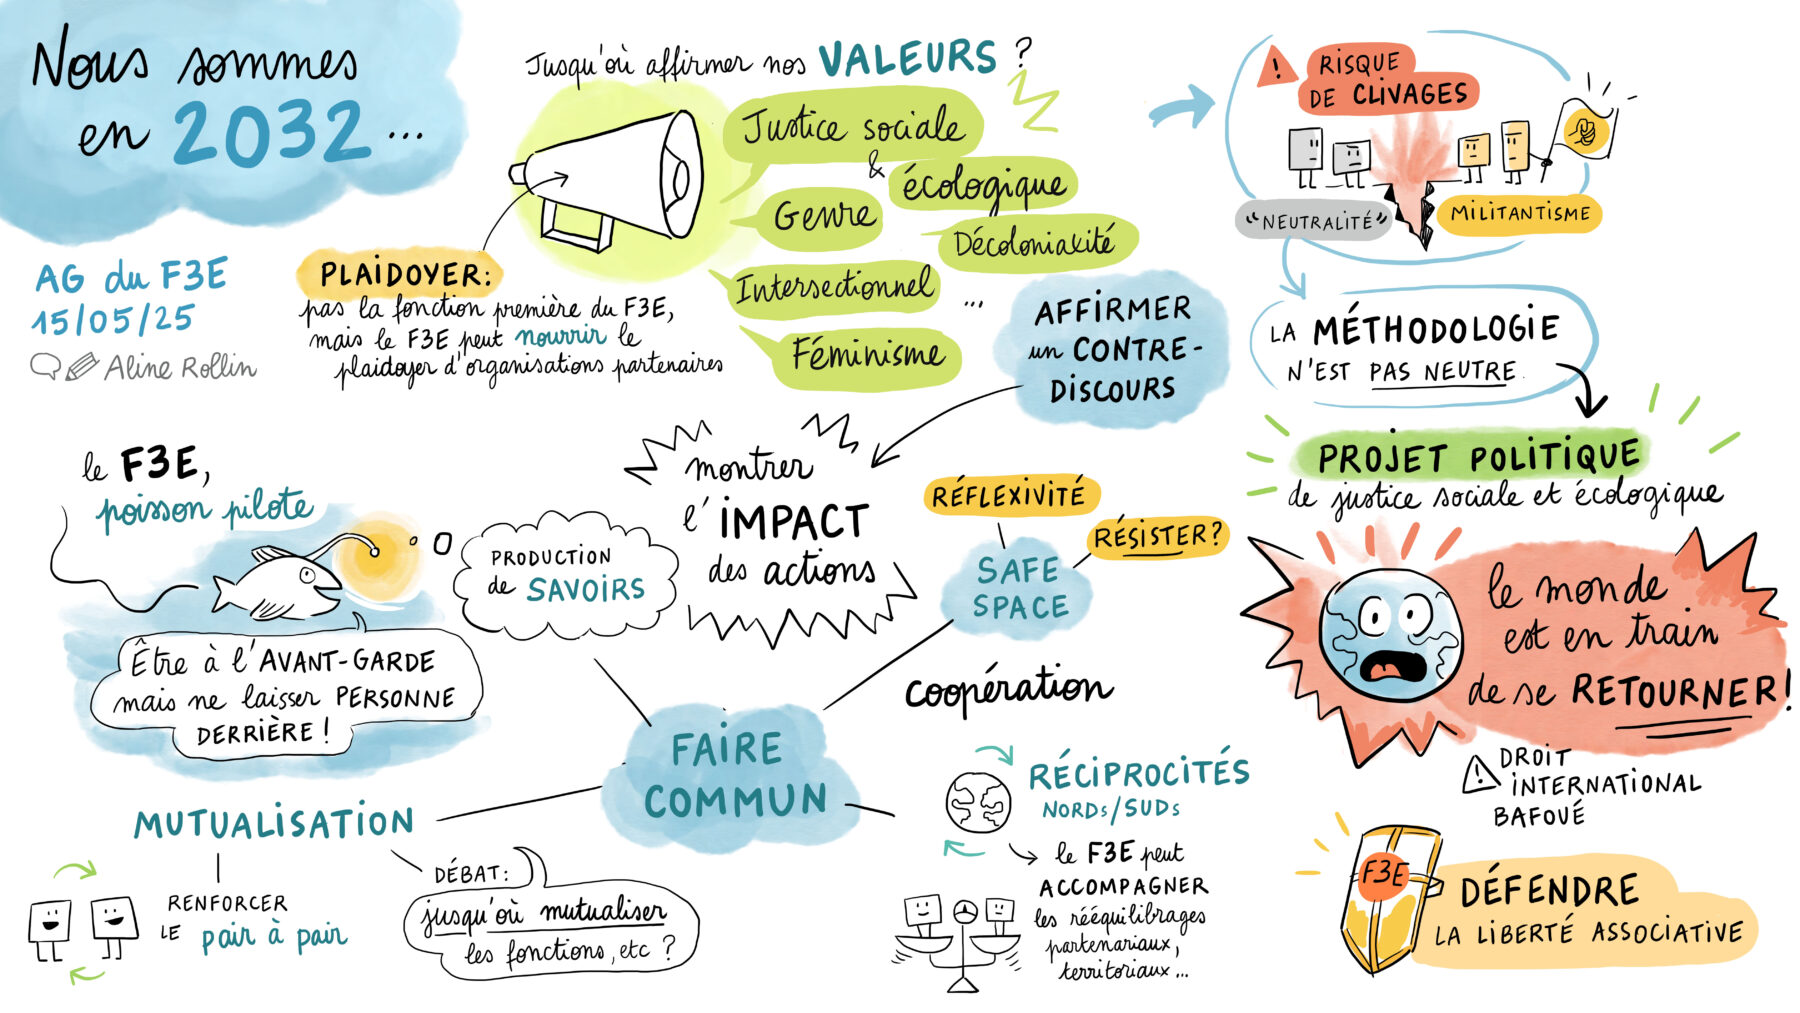 Nous sommes
en 2032...
AG du F3E
15/05/25
Aline Rollin
Jusqu'où affirmer nos VALEURS ?
Justice sociale
&
écologique
Genre
Décolonialité
Intersectionnel
...
Féminisme
PLAIDOYER:
pas la fonction première du F3E,
mais le F3E peut nourrir le
plaidoyer d'organisations partenaires
!
RISQUE
DE CLIVAGES
"NEUTRALITÉ"
MILITANTISME
LA MÉTHODOLOGIE
N'EST PAS NEUTRE.
PROJET POLITIQUE
de justice sociale et écologique
AFFIRMER
un CONTRE-
DISCOURS
montrer
l'IMPACT
des actions
le F3E,
poisson pilote
Être à l'AVANT-GARDE
mais ne laisser PERSONNE
DERRIÈRE !
PRODUCTION
de SAVOIRS
RÉFLEXIVITÉ
RÉSISTER?
SAFE
SPACE
coopération
FAIRE
COMMUN
MUTUALISATION
RENFORCER
LE pair à pair
DÉBAT:
jusqu'où mutualiser
les fonctions, etc ?
RÉCIPROCITÉS
NORDs/SUDs
le F3E peut
ACCOMPAGNER
les rééquilibrages
partenariaux,
territoriaux...
le monde
est en train
de se RETOURNER!
!
DROIT
INTERNATIONAL
BAFOUÉ
F3E
DÉFENDRE
LA LIBERTÉ ASSOCIATIVE